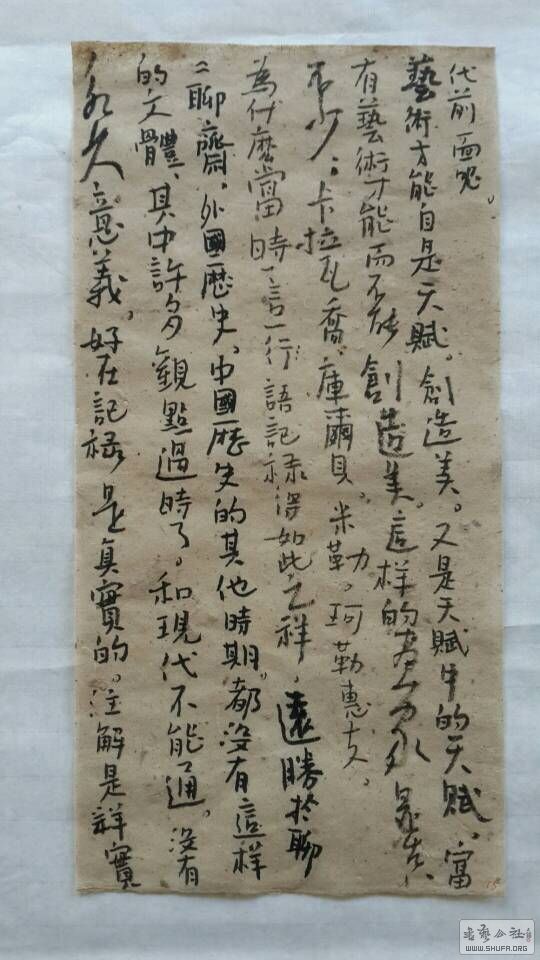 代前面呢。
藝術才能自是天賦。創造美。又是天賦中的天賦。富
有藝術才能而不能創造美。這样的畫家多
不少：卡拉瓦喬。庫爾貝。米勒。珂勒惠支。
為什麽當時一言一行語記禄得如此之祥，遠勝於聊
聊齋。外國歷史。中國歷史的其他時期。都没有這樣
的文體、其中許多觀點過時了。和現代不能通。没有
永久意義。好在記禄是真實的。注解是詳實
WWW.SHUFA.ORG